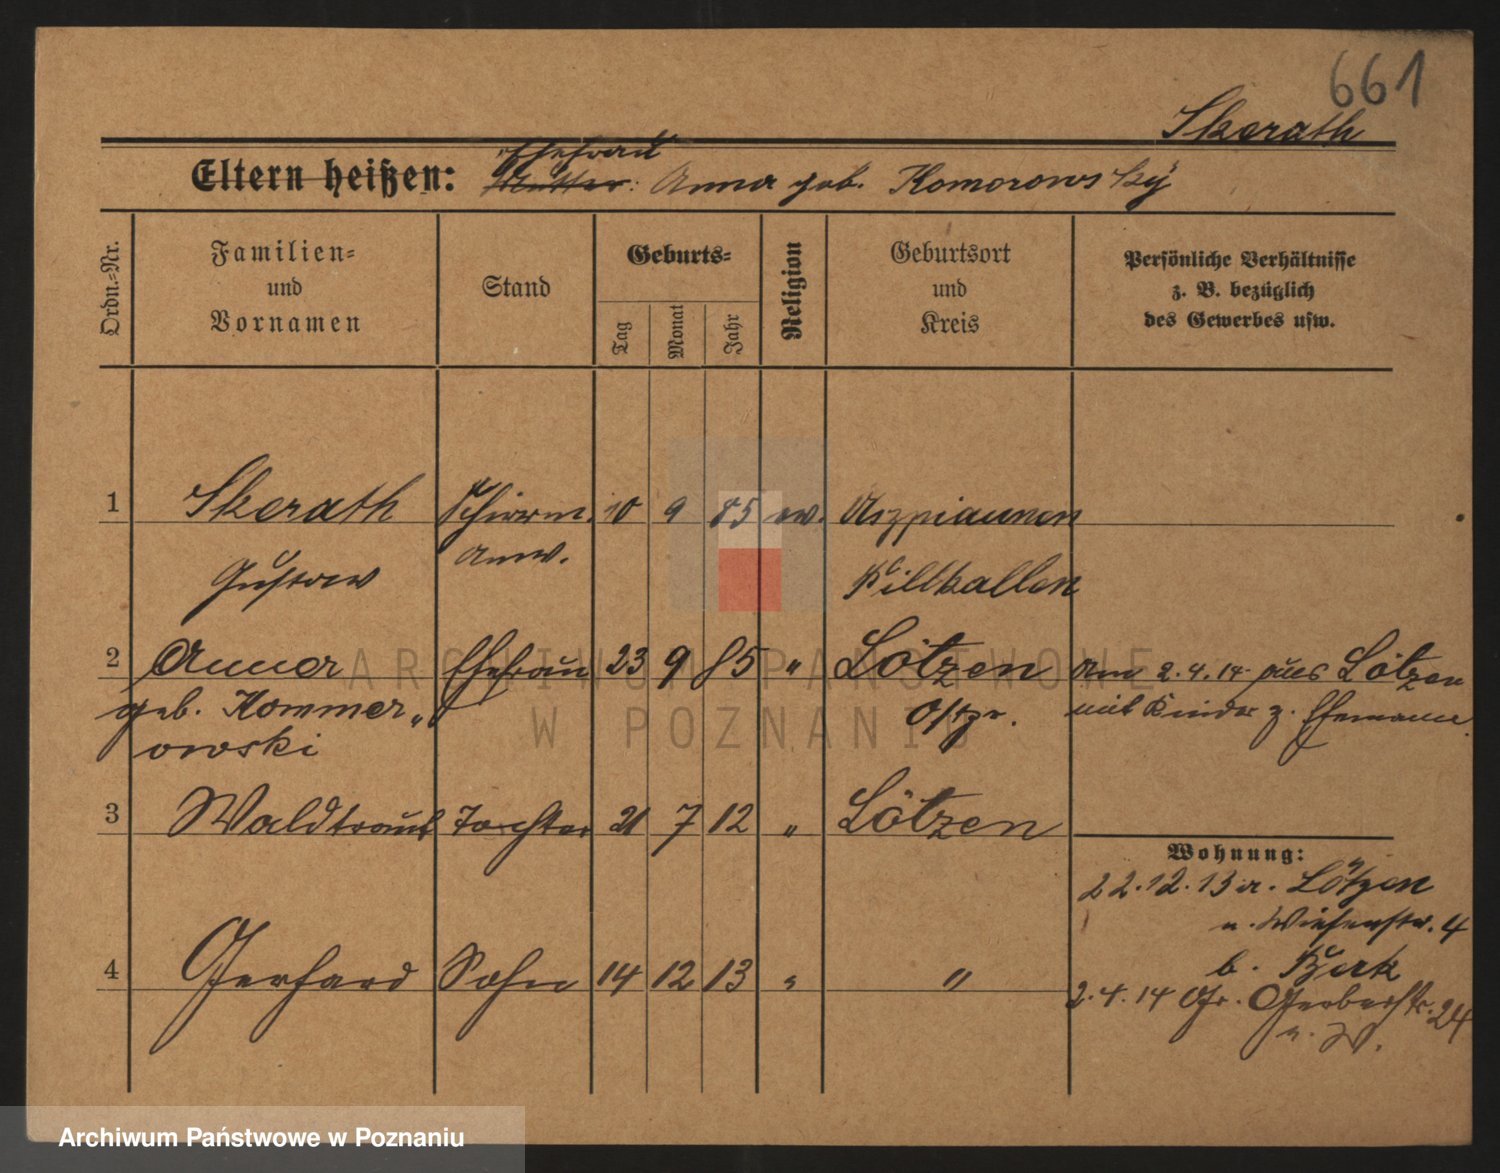 661
Skerath
Ehefrau
Eltern heißen: Mutter: Anna geb. Komorowsky
Ordn.-Nr.
Familien-
und
Vornamen
Stand
Geburts-
Tag
Monat
Jahr
Religion
Geburtsort
und
Kreis
Persönliche Verhältnisse
z. B. bezüglich
des Gewerbes usw.
1 Skerath Schirrm. 10 9 85 ev. Uszpiaunen
Gustav Anw. Pillkallen
2 Anna Ehefrau 23 9 85 " Lötzen Am 2.4.14 aus Lötzen
geb. Kommer„ Ostpr. mit Kinder z. Ehemann.
owski
3 Waldtraut Tochter 21 7 12 " Lötzen
Wohnung:
22.12.13 a. Lötzen
n. Wiesenstr. 4
b.
4 Gerhard Sohn 14 12 13 " "
2.4.14 Gr. Gerberstr. 24
n. W.
ARCHIWUM PAŃSTWOWE
W POZNANIU
Archiwum Państwowe w Poznaniu